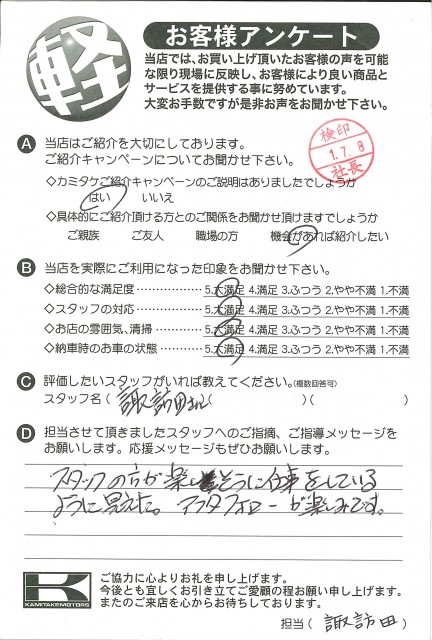 軽
お客様アンケート
当店では、お買い上げ頂いたお客様の声を可能
な限り現場に反映し、お客様により良い商品と
サービスを提供する事に努めています。
大変お手数ですが是非お声をお聞かせ下さい。
検印
1.7.8
社長
A 当店はご紹介を大切にしております。
ご紹介キャンペーンについてお聞かせ下さい。
◇カミタケご紹介キャンペーンのご説明はありましたでしょうか
はい いいえ
◇具体的にご紹介頂ける方とのご関係をお聞かせ頂けますでしょうか
ご親族 ご友人 職場の方 機会があれば紹介したい
B 当店を実際にご利用になった印象をお聞かせ下さい。
◇総合的な満足度 5.大満足 4.満足 3.ふつう 2.やや不満 1.不満
◇スタッフの対応 5.大満足 4.満足 3.ふつう 2.やや不満 1.不満
◇お店の雰囲気、清掃 5.大満足 4.満足 3.ふつう 2.やや不満 1.不満
◇納車時のお車の状態 5.大満足 4.満足 3.ふつう 2.やや不満 1.不満
C 評価したいスタッフがいれば教えてください。(複数回答可)
スタッフ名 ( 諏訪田さん )( )
D 担当させて頂きましたスタッフへのご指摘、ご指導メッセージを
お願いします。応援メッセージもぜひお願いします。
スタッフの方が楽しそうに仕事をしている
ように見えた。アフタフォローが楽しみです。
K
KAMITAKEMOTORS
ご協力に心よりお礼を申し上げます。
今後とも宜しくお引き立てご愛顧の程お願い申し上げます。
またのご来店を心からお待ちしております。
担当 ( 諏訪田 )